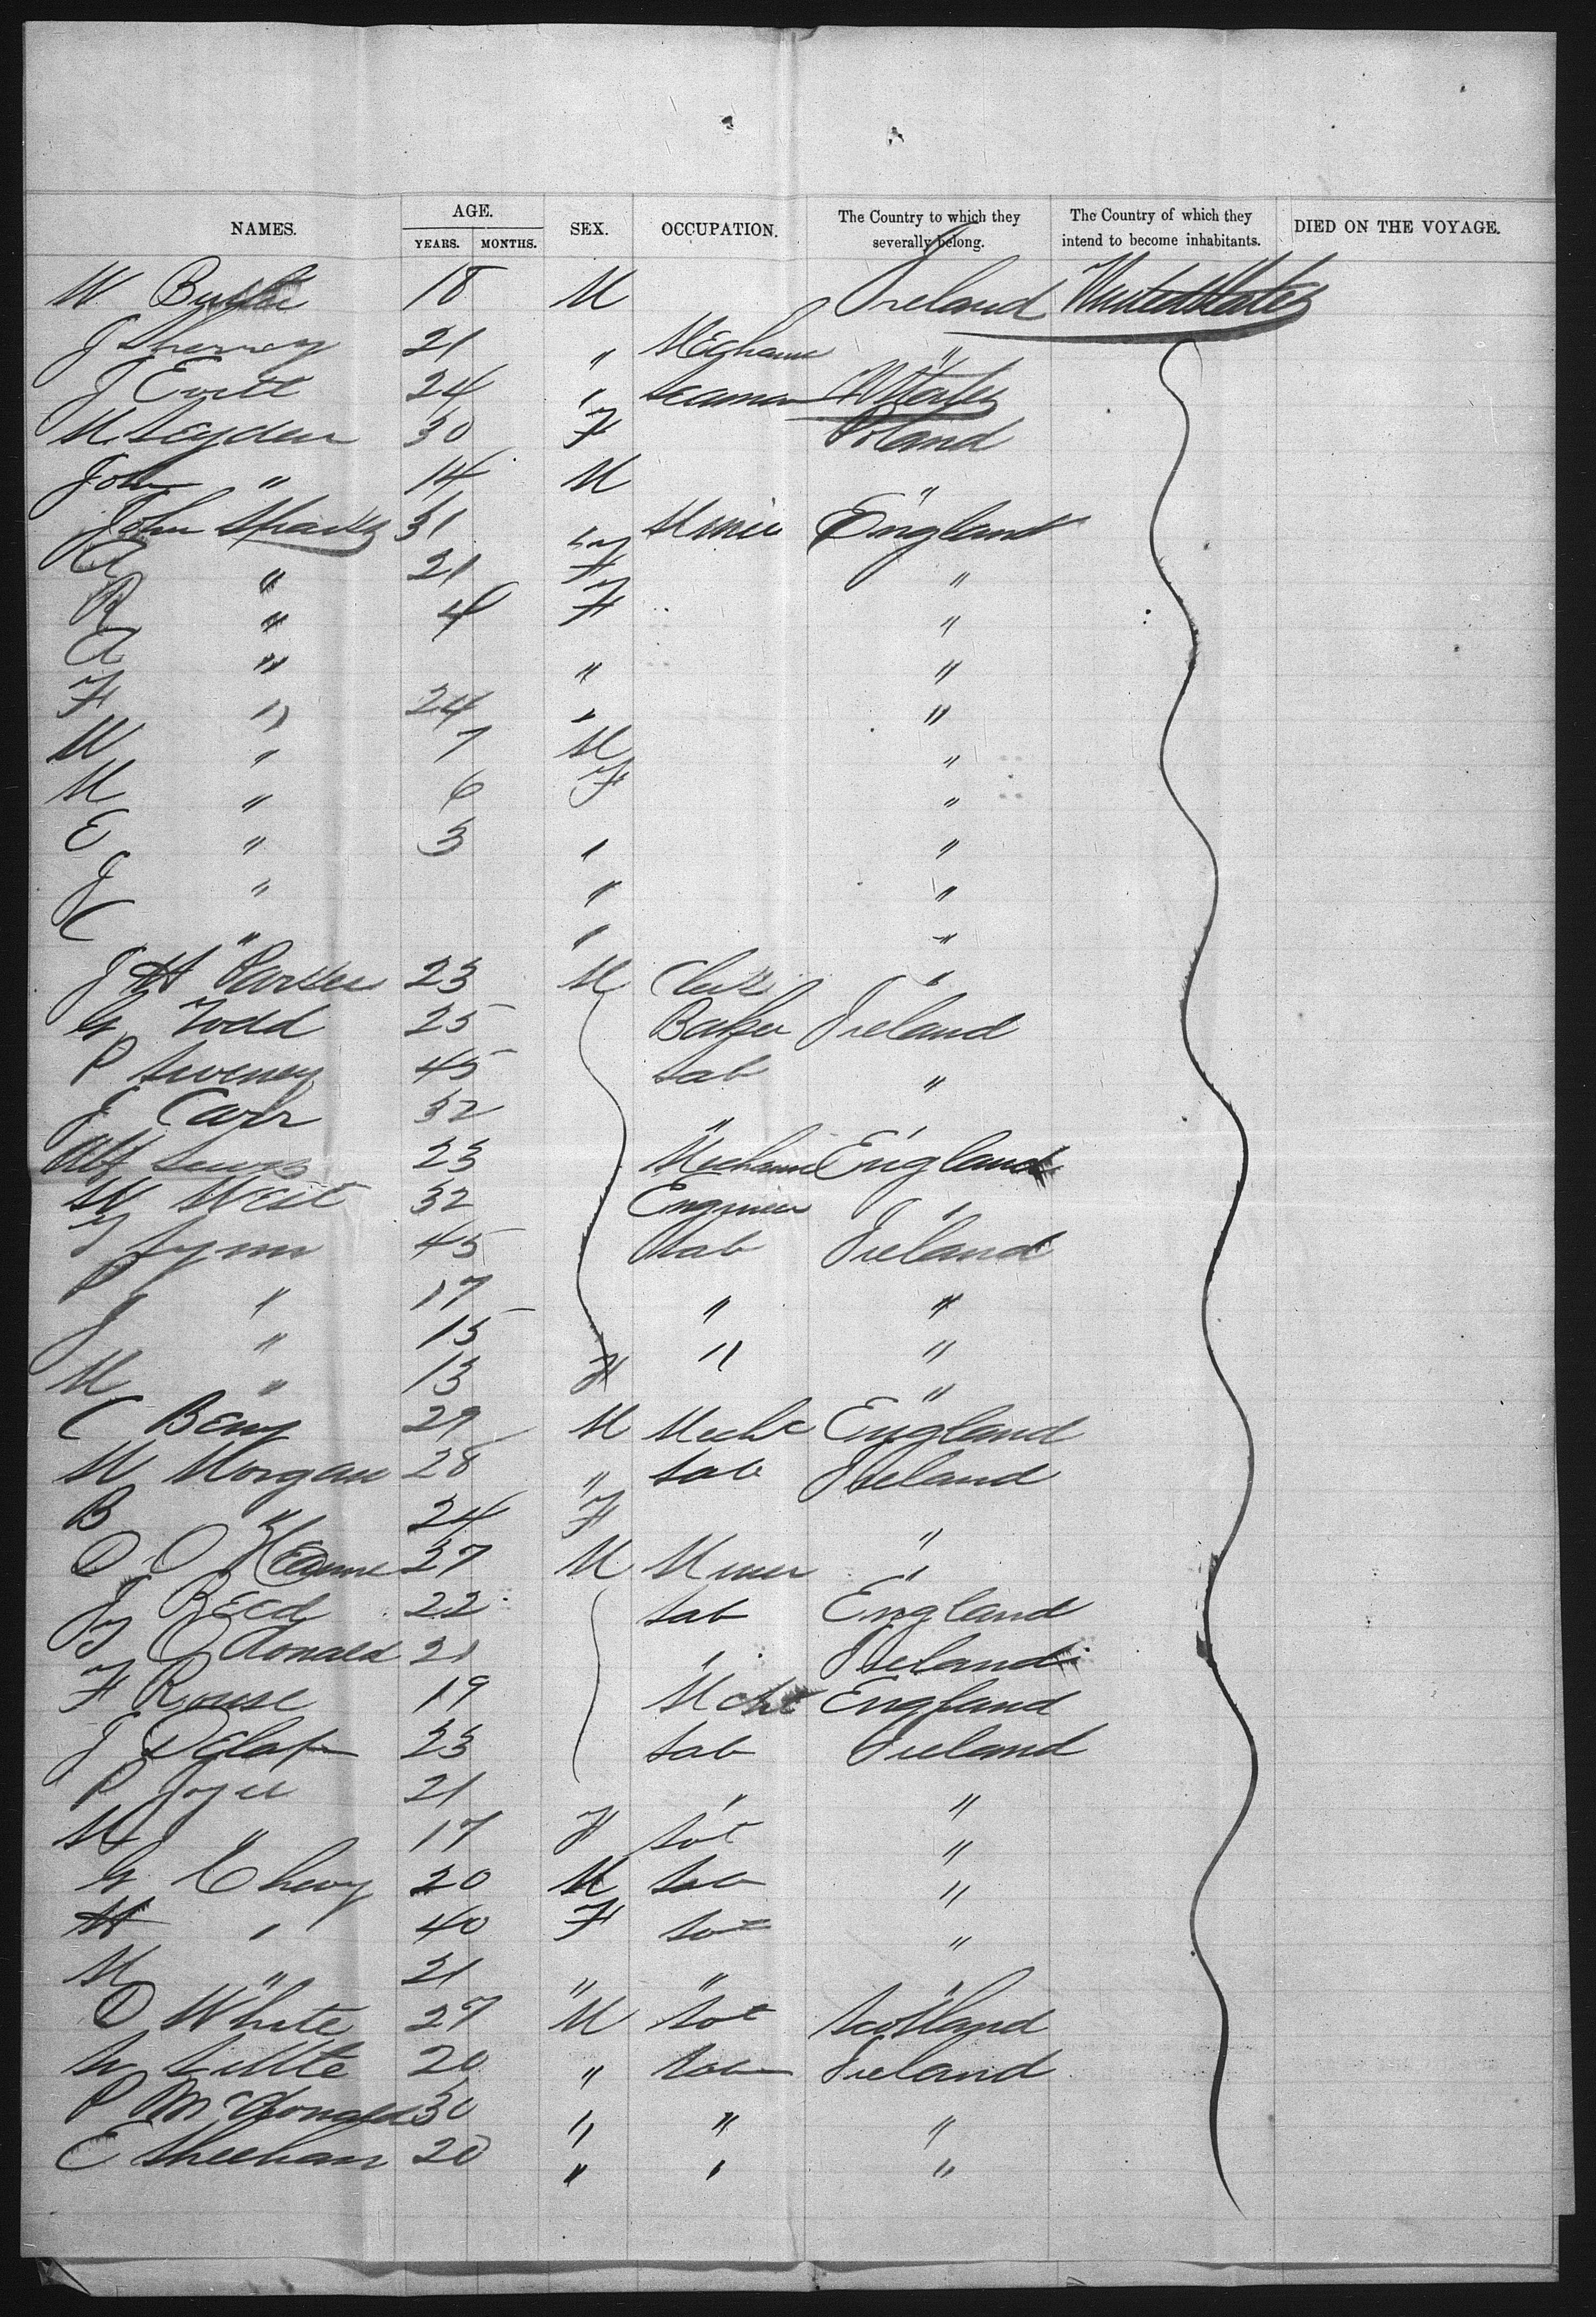 NAMES. AGE. YEARS. MONTHS. SEX. OCCUPATION. The Country to which they severally belong. The Country of which they intend to become inhabitants. DIED ON THE VOYAGE.
W 18 M Ireland United States
J 21 " Mechanic "
J Evitt 24 " Seaman U States
M. Seyden 30 F Poland
John " 14 M "
John Sparks 31 " Miner England
A " 21 F "
R " 4 F "
A " " "
F " 24 " "
W " 7 M "
M " 6 F "
E " 3 " "
J " " "
C " " "
J H Parker 23 M Clerk "
G Todd 25 Baker Ireland
P Sweney 45 Lab "
J Carr 32 " "
Alf Lewis 23 Mechanic England
W West 32 Engineer "
T Lynn 45 Lab Ireland
P " 17 " "
J " 15 " "
M " 13 F "
C Berry 29 M Mechc England
W Morgan 28 " Lab Ireland
B " 24 F "
O 27 M Miner "
J Reed 22 Lab England
T O Donald 21 " Ireland
F Rouse 19 England
J Delap 23 Lab Ireland
P Joyce 21 " "
M " 17 F "
G 20 M Lab "
H " 40 F "
M " 21 " " "
D White 27 M Scotland
W 20 " Lab Ireland
P McDonald 30 " " "
E Sheehan 20 " " "